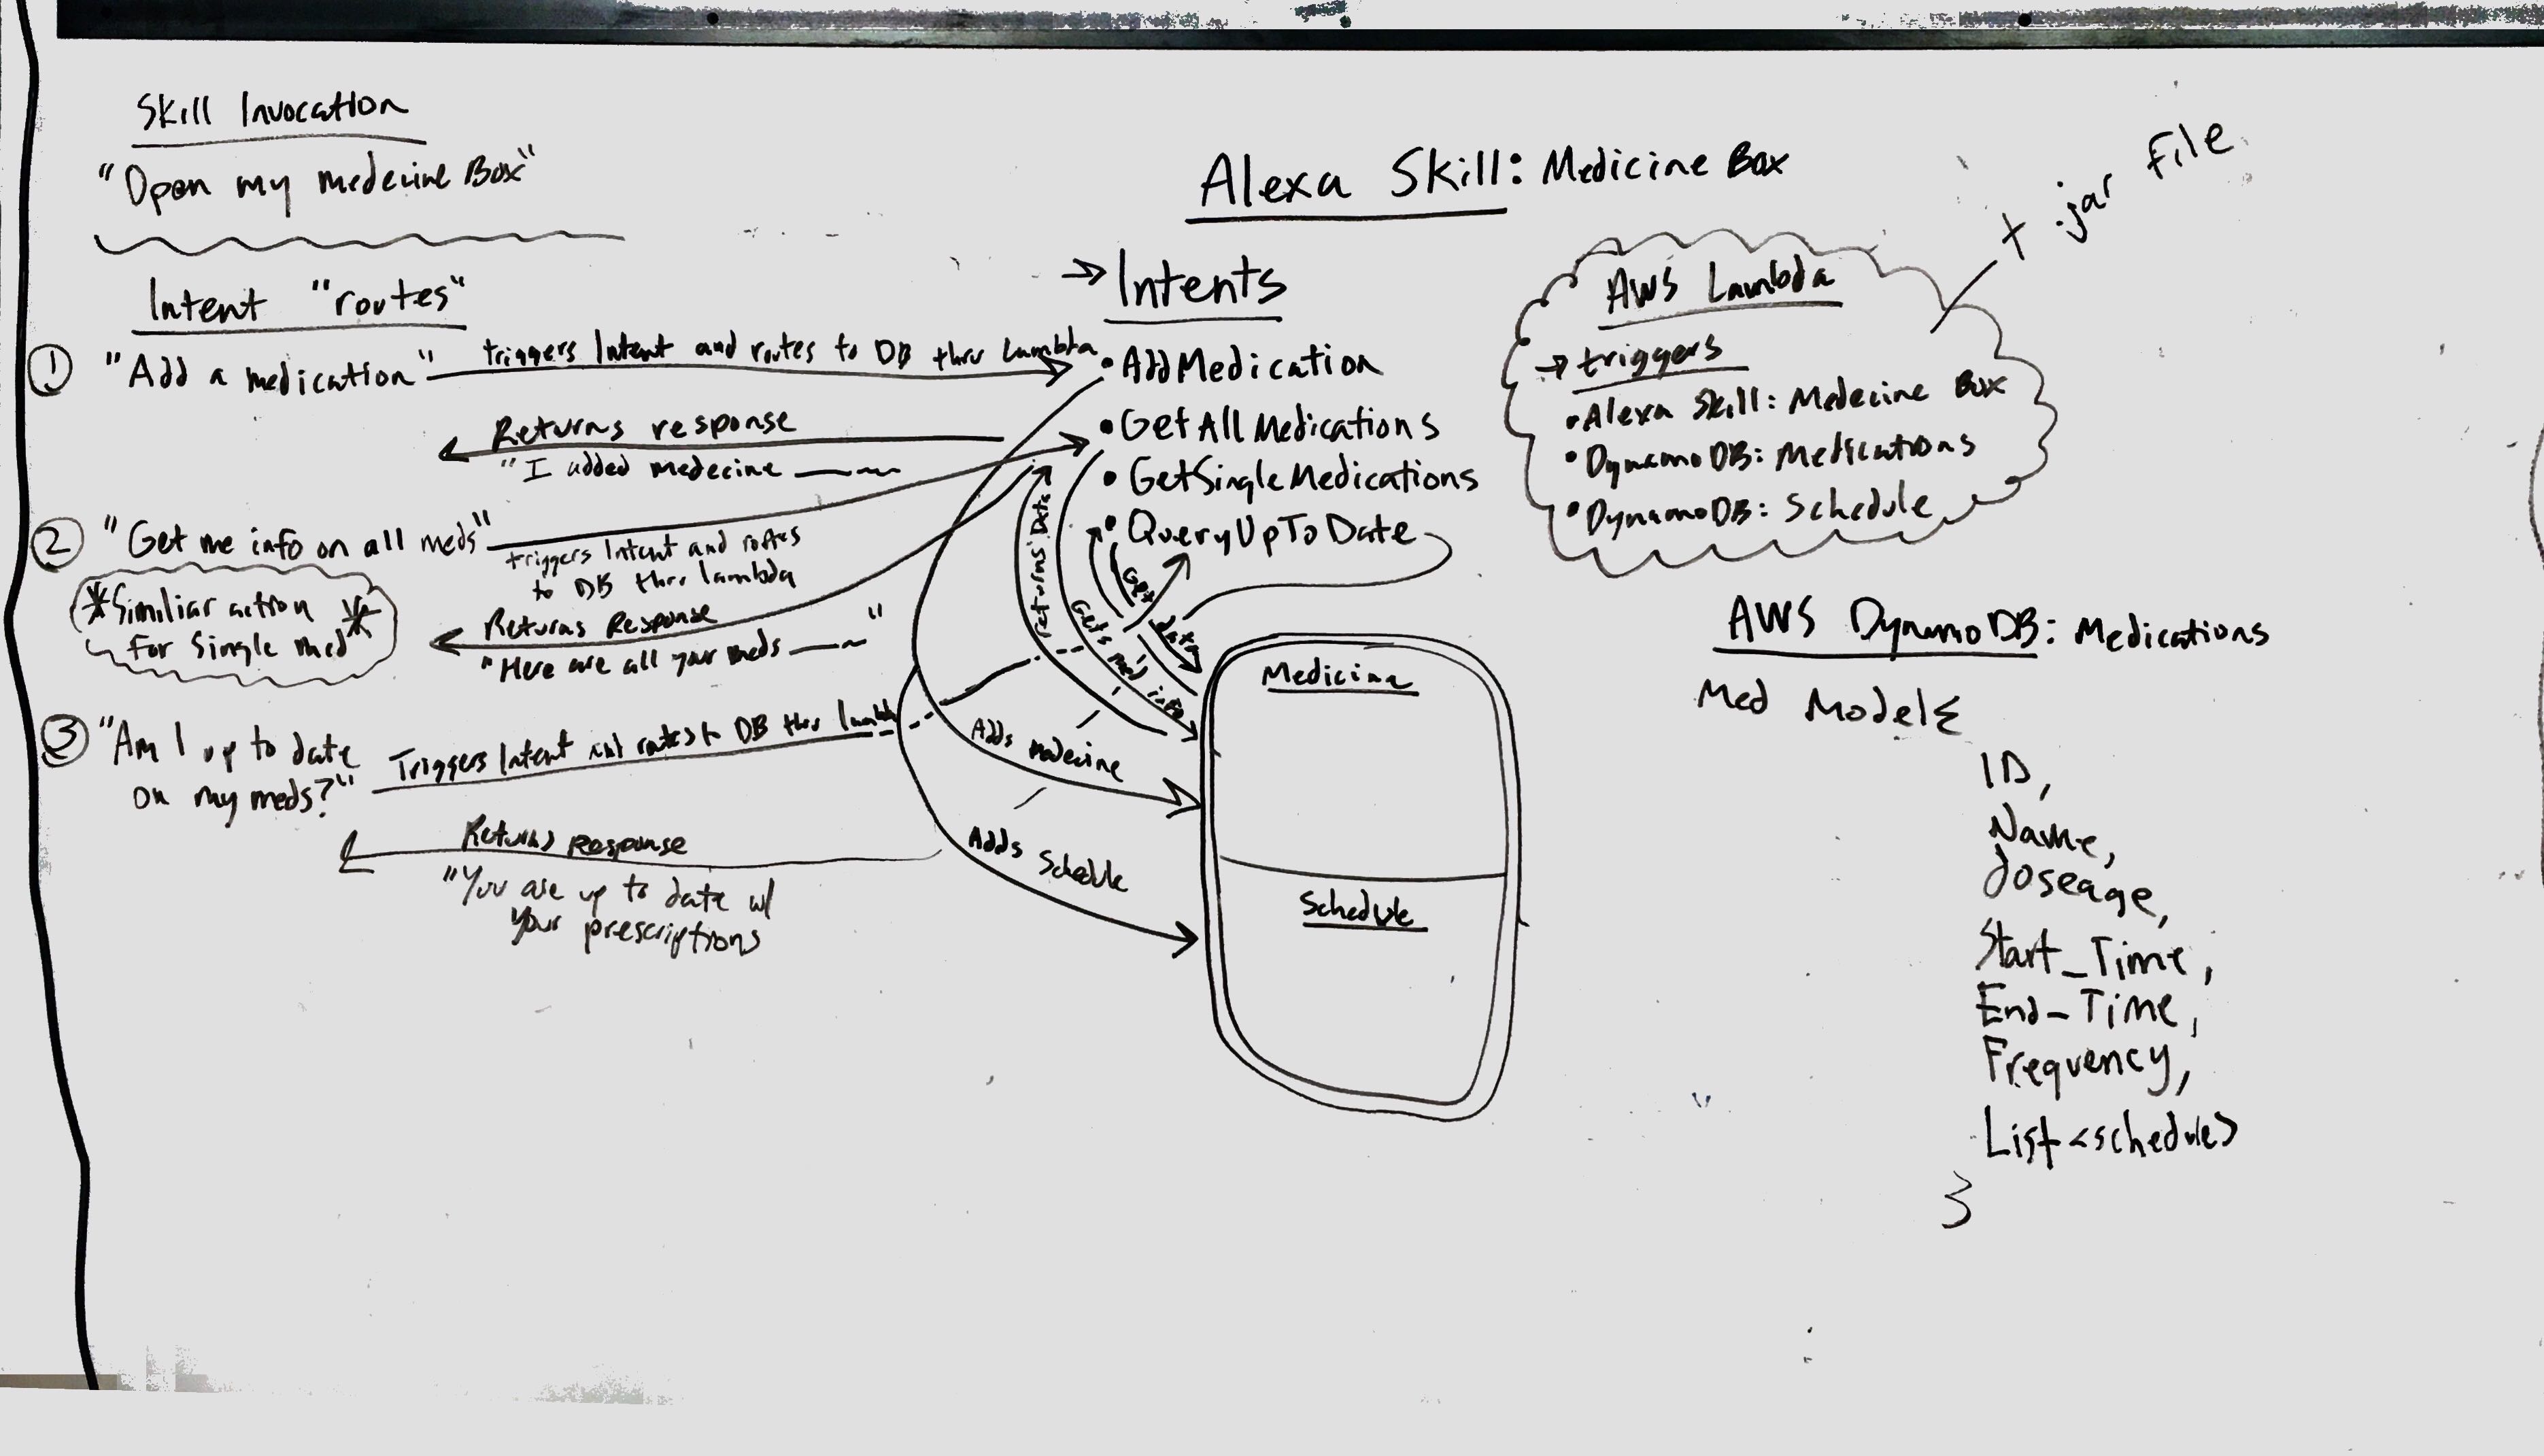 Skill Invocation
"Open my medecine Box"
Intent "routes"
① "Add a medication"
triggers Intent and routes to DB thru Lambda
Returns response
"I added medecine
② "Get me info on all meds"
triggers Intent and routes
to DB thru lambda
*Similiar action
for single med*
Returns Response
"Here are all your meds "
③ "Am I up to date
on my meds?"
Triggers Intent and routes to DB thru lambda
Returns Response
"You are up to date w/
your prescriptions
Alexa Skill: Medicine Box
→ Intents
• AddMedication
• GetAllMedications
• GetSingleMedications
• QueryUpToDate
returns Data
Gets med info
Get
data
Adds medecine
Adds Schedule
Medicine
Schedule
+ .jar file
AWS Lambda
→ triggers
• Alexa Skill: Medecine Box
• DynamoDB: Medications
• DynamoDB: Schedule
AWS DynamoDB: Medications
Med Model{
ID,
Name,
doseage,
Start_Time,
End_Time,
Frequency,
List<schedule>
}